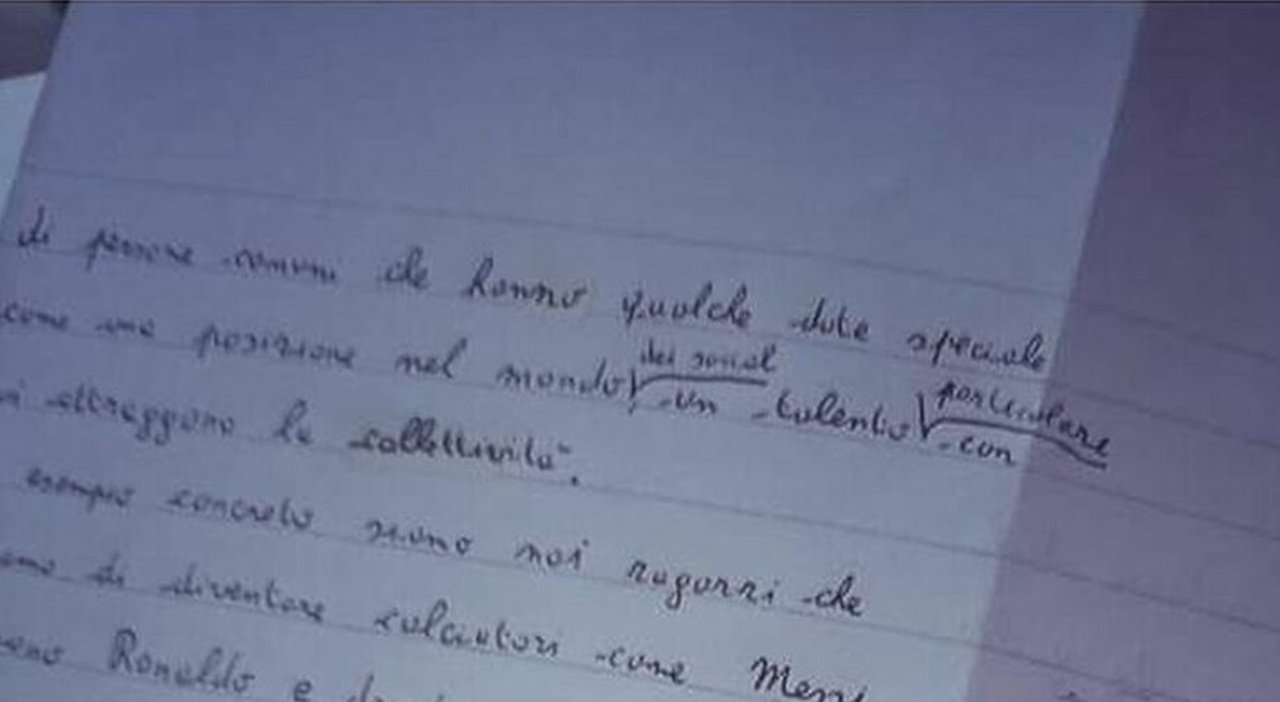 di persone comuni che hanno qualche dote speciale
come una posizione nel mondo dei social un talento particolare con
attraggono la collettività".
esempio concreto siamo noi ragazzi che
di diventare calciatori come Messi
Ronaldo e